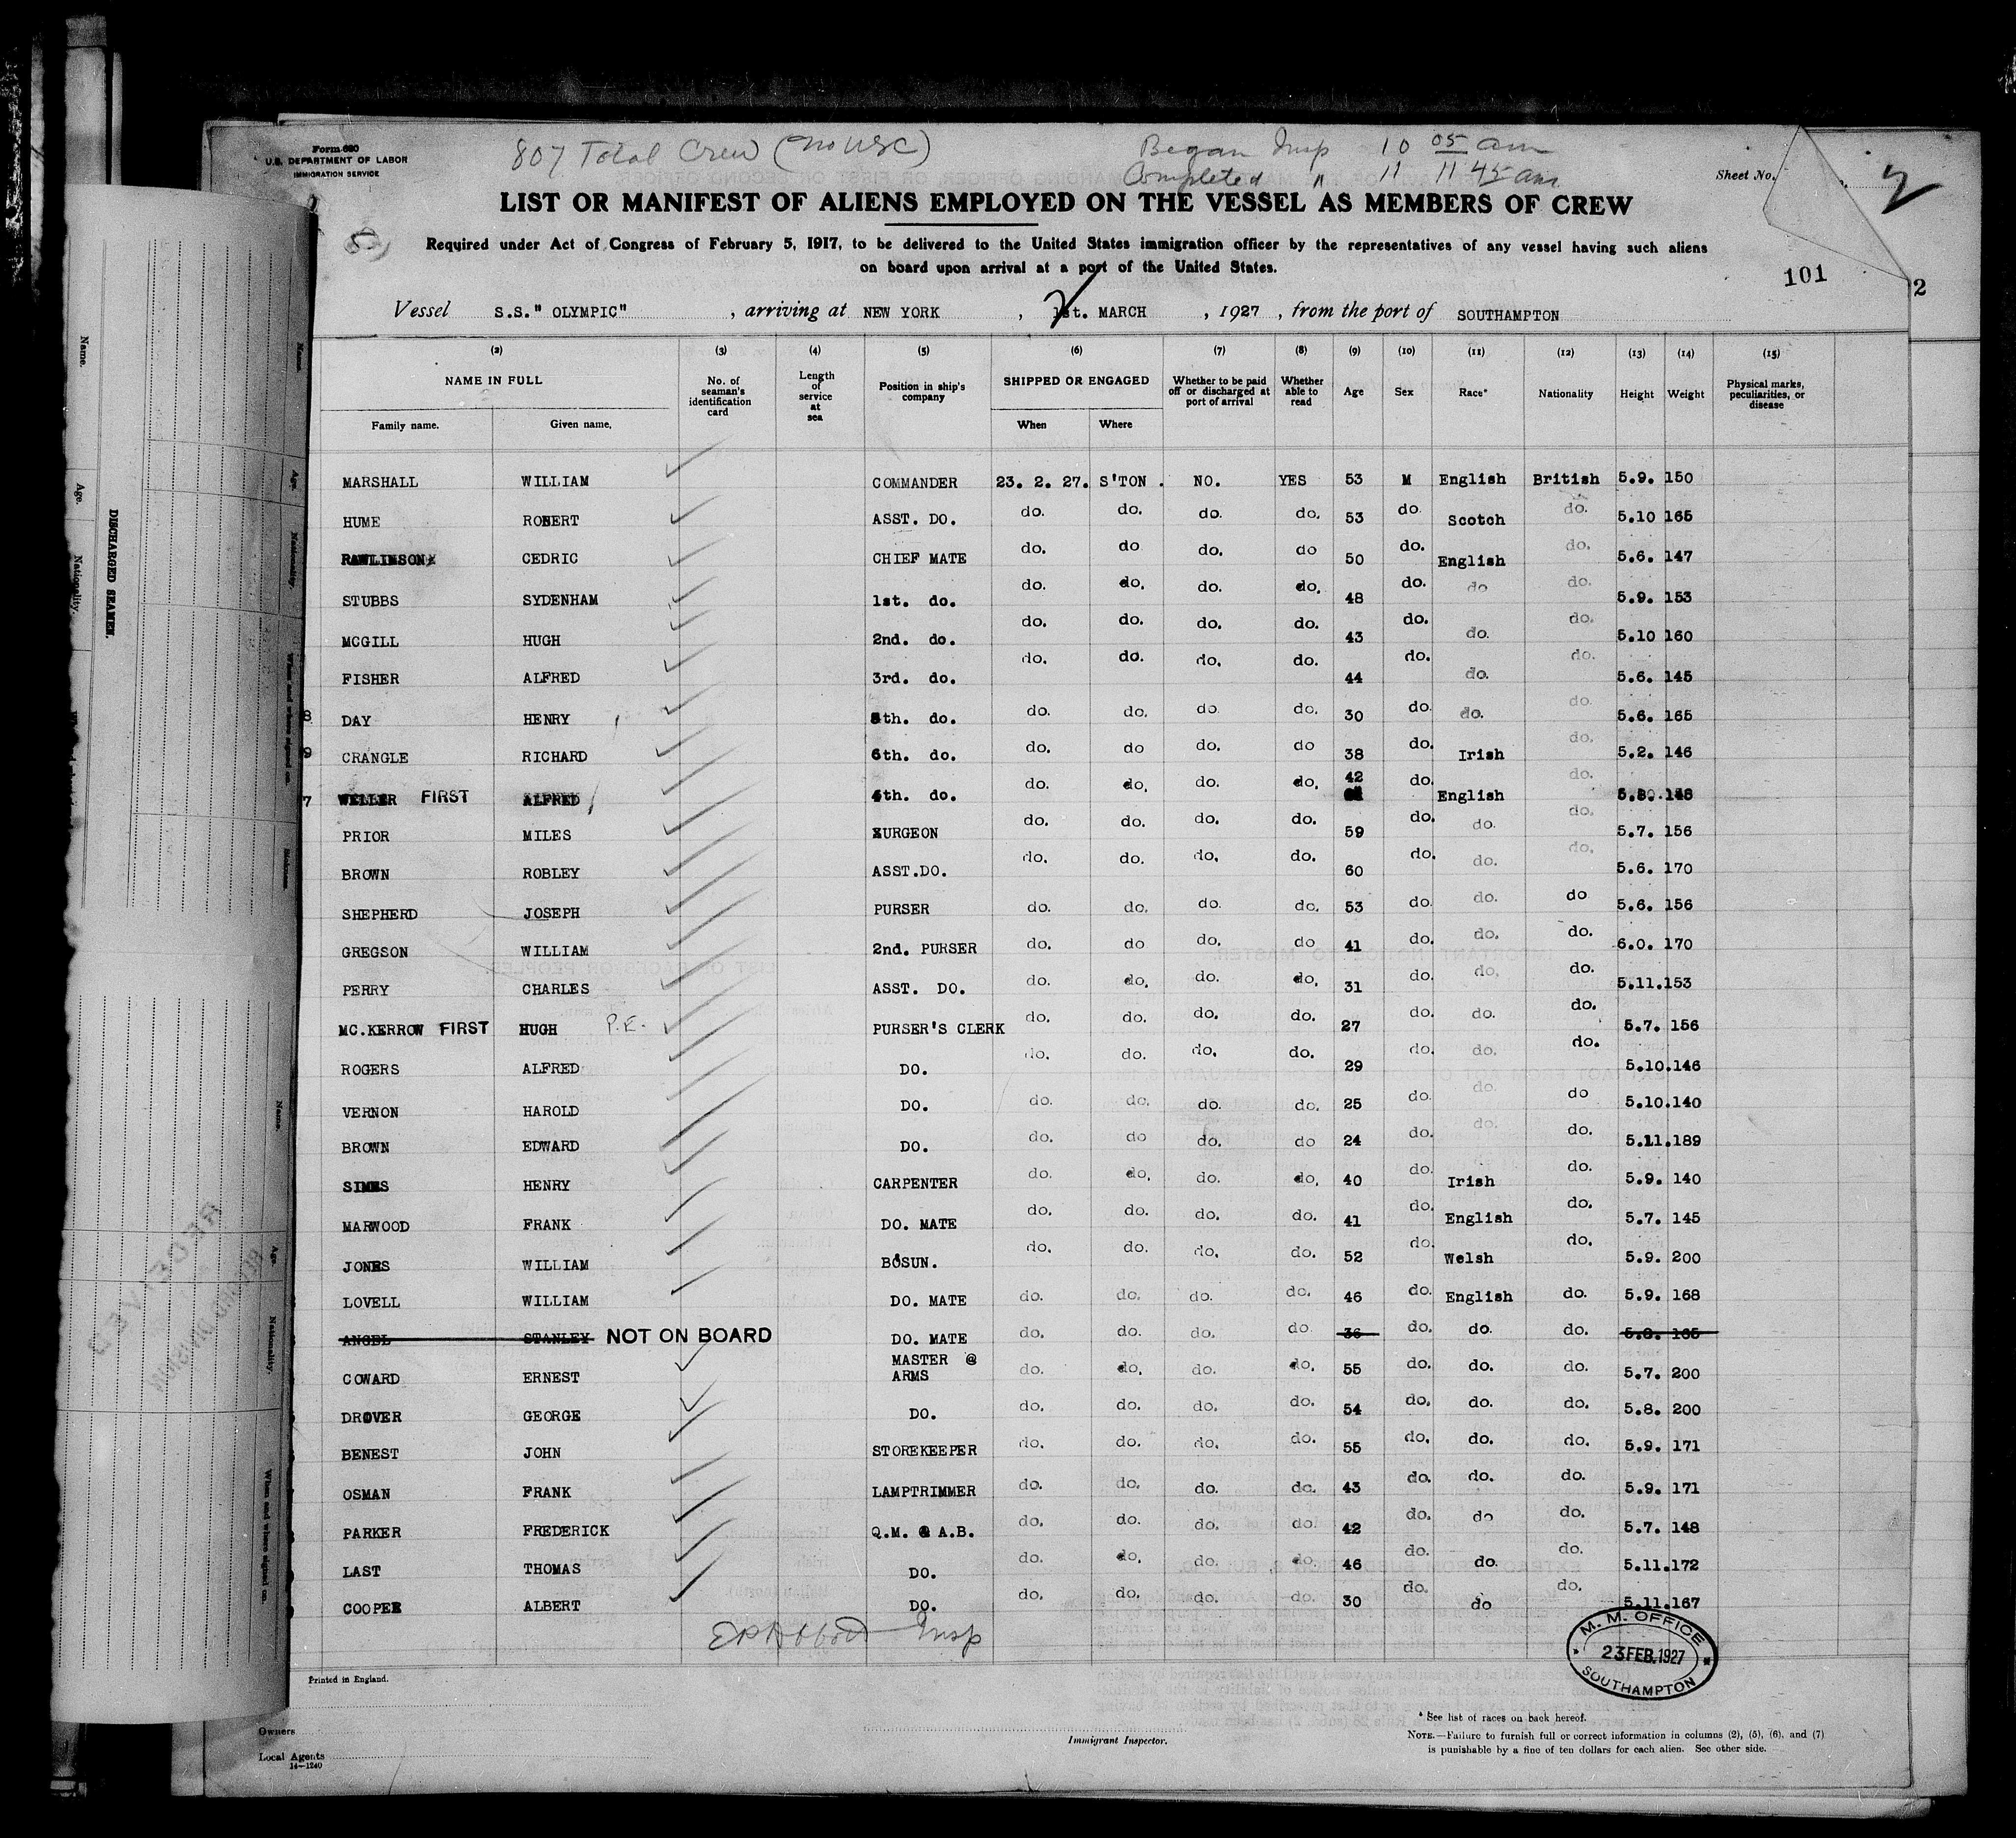 Form 680
U.S. DEPARTMENT OF LABOR
IMMIGRATION SERVICE
807 Total Crew (no USC)
Began Insp 10 05 am
Completed " 11 45 am
Sheet No. 2
LIST OR MANIFEST OF ALIENS EMPLOYED ON THE VESSEL AS MEMBERS OF CREW
Required under Act of Congress of February 5, 1917, to be delivered to the United States immigration officer by the representatives of any vessel having such aliens
on board upon arrival at a port of the United States.
101
2
Vessel S.S." OLYMPIC" , arriving at NEW YORK , 1st. MARCH , 1927 , from the port of SOUTHAMPTON
(2) (3) (4) (5) (6) (7) (8) (9) (10) (11) (12) (13) (14) (15)
NAME IN FULL
Family name. Given name,
No. of seaman's identification card
Length of service at sea
Position in ship's company
SHIPPED OR ENGAGED
When Where
Whether to be paid off or discharged at port of arrival
Whether able to read
Age Sex Race* Nationality Height Weight
Physical marks, peculiarities, or disease
MARSHALL WILLIAM COMMANDER 23. 2. 27. S'TON . NO. YES 53 M English British 5.9. 150
HUME ROBERT ASST. DO. do. do. do. do. 53 do. Scotch do. 5.10 165
RAWLINSON CEDRIC CHIEF MATE do. do do. do 50 do. English do. 5.6. 147
STUBBS SYDENHAM 1st. do. do. do. do. do. 48 do. do do. 5.9. 153
MCGILL HUGH 2nd. do. do. do. do. do. 43 do. do. do. 5.10 160
FISHER ALFRED 3rd. do. do. do. do. do. 44 do. do. do. 5.6. 145
8 DAY HENRY 5th. do. do. do. do. do. 30 do. do. do. 5.6. 165
9 CRANGLE RICHARD 6th. do. do. do do. do 38 do. Irish do. 5.2. 146
7 WELLER FIRST ALFRED 4th. do. do. do. do. do. 42 do. English do. 148
PRIOR MILES SURGEON do. do. do. do. 59 do. do. do. 5.7. 156
BROWN ROBLEY ASST.DO. do. do. do. do. 60 do. do. do. 5.6. 170
SHEPHERD JOSEPH PURSER do. do. do. do. 53 do. do. do 5.6. 156
GREGSON WILLIAM 2nd. PURSER do. do do. do 41 do. do. do. 6.0. 170
PERRY CHARLES ASST. DO. do. do. do. do. 31 do. do. do. 5.11.153
MC.KERROW FIRST HUGH P.E. PURSER'S CLERK do. do. do. do. 27 do. do. do. 5.7. 156
ROGERS ALFRED DO. do. do. do. do. 29 do. do. do. 5.10.146
VERNON HAROLD DO. do. do. do. do. 25 do. do. do 5.10.140
BROWN EDWARD DO. do. do do. do 24 do. do. do. 5.11.189
SIMMS HENRY CARPENTER do. do. do. do. 40 do. Irish do. 5.9. 140
MARWOOD FRANK DO. MATE do. do. do. do. 41 do. English do. 5.7. 145
JONES WILLIAM BO'SUN. do. do. do. do. 52 do. Welsh do. 5.9. 200
LOVELL WILLIAM DO. MATE do. do. do. do. 46 do. English do. 5.9. 168
ANGEL STANLEY NOT ON BOARD DO. MATE do. do. do. do 36 do. do. do. 5.8. 165
COWARD ERNEST MASTER @ ARMS do. do. do. do. 55 do. do. do. 5.7. 200
DROVER GEORGE DO. do. do. do. do. 54 do. do. do. 5.8. 200
BENEST JOHN STOREKEEPER do. do. do. do. 55 do. do. do. 5.9. 171
OSMAN FRANK LAMPTRIMMER do. do. do. do. 43 do. do. do. 5.9. 171
PARKER FREDERICK Q.M. @ A.B. do. do. do. do. 42 do. do do. 5.7. 148
LAST THOMAS DO. do. do. do. do. 46 do. do. do. 5.11.172
COOPER ALBERT DO. do. do. do. do. 30 do. do do. 5.11.167
Insp
M. M. OFFICE
23 FEB. 1927
SOUTHAMPTON
Printed in England.
Owners
Local Agents
14—1240
Immigrant Inspector.
* See list of races on back hereof.
NOTE.—Failure to furnish full or correct information in columns (2), (5), (6), and (7)
is punishable by a fine of ten dollars for each alien. See other side.
DISCHARGED SEAMEN.
Name. Age. Nationality.
Name. Age. Nationality. When and where signed on.
Name. Age. Nationality. When and where signed on.
RECEIVED